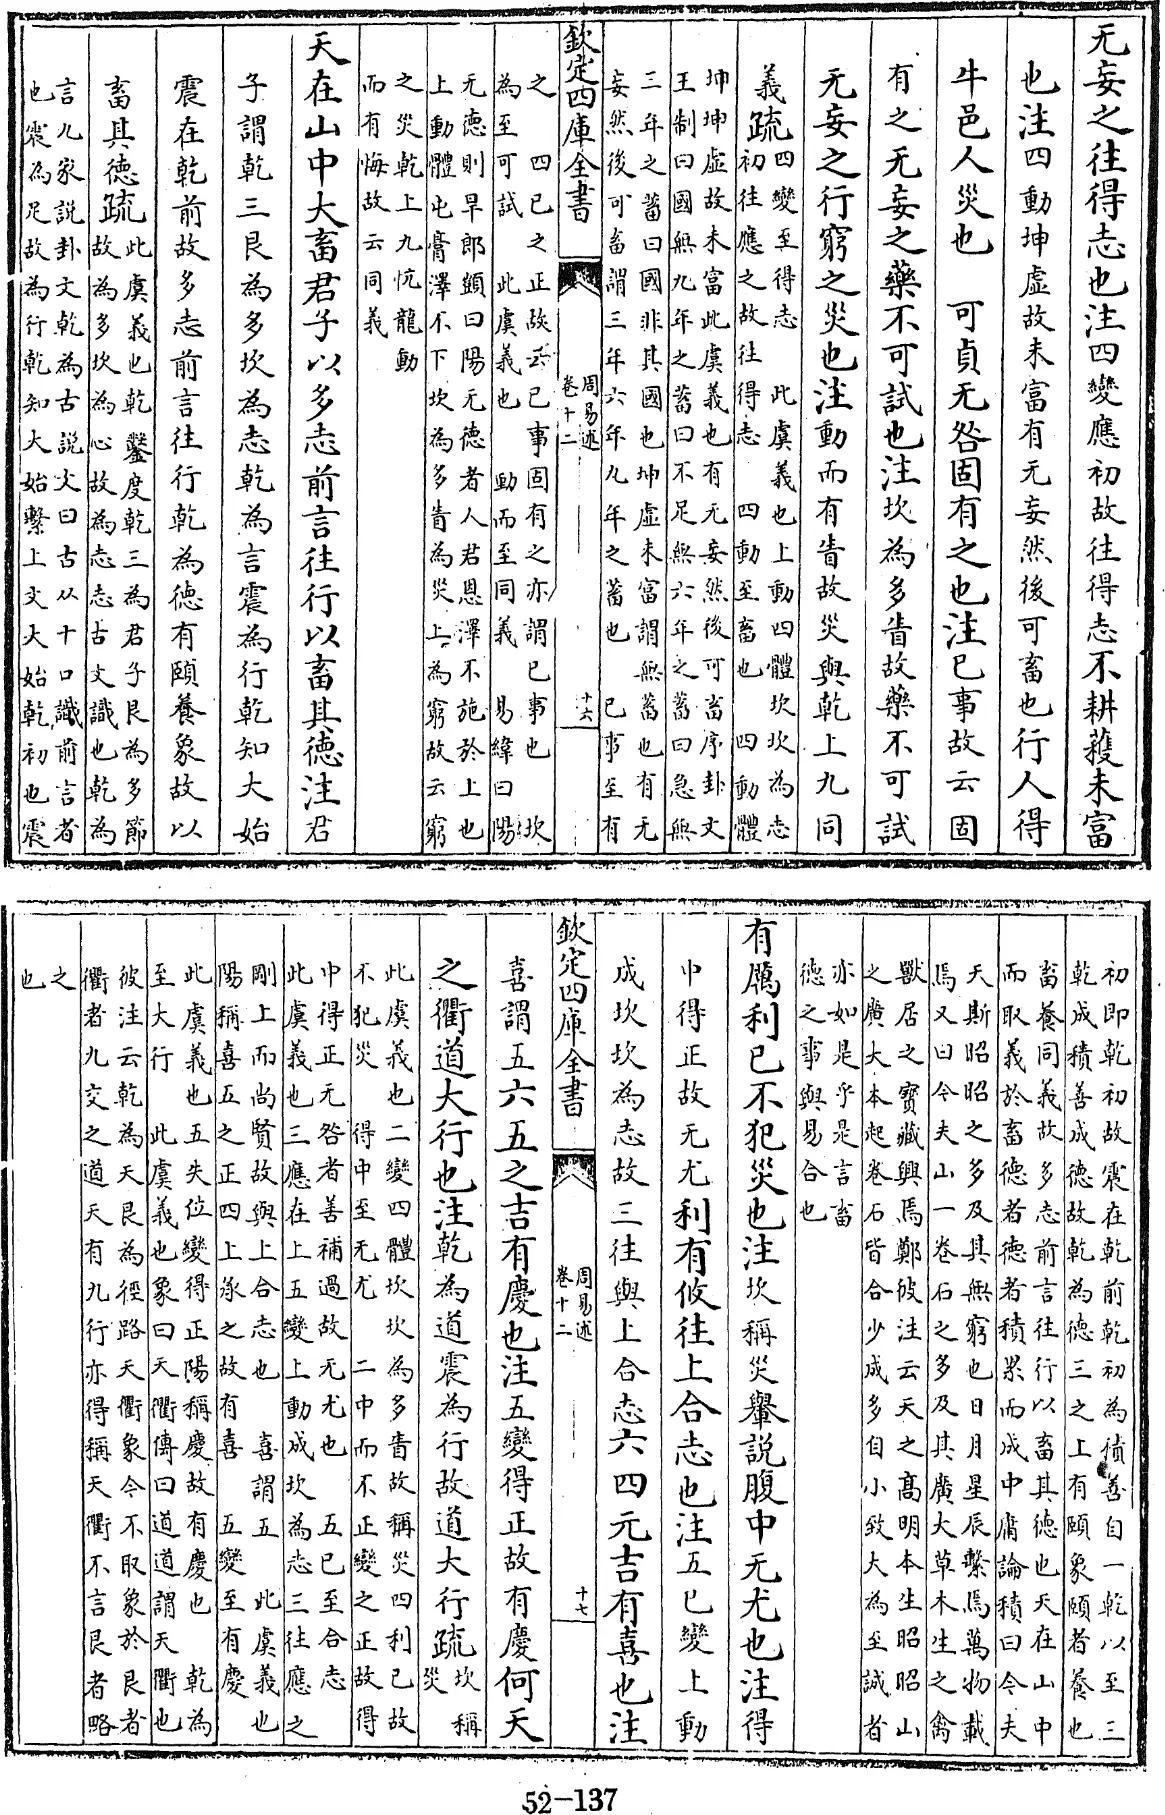 无妄之往得志也注四變應初故往得志不耕穫未富
也注四動坤虛故未富有无妄然後可畜也行人得
牛邑人災也　可貞无咎固有之也注已事故云固
有之无妄之藥不可試也注坎為多眚故藥不可試
无妄之行窮之災也注動而有眚故災與乾上九同
義疏四變至得志　此虞義也上動四體坎坎為志
初往應之故往得志　四動至畜也　四動體
坤坤虛故未富此虞義也有无妄然後可畜序卦文
王制曰國無九年之蓄曰不足無六年之蓄曰急無
三年之蓄曰國非其國也坤虛未富謂無蓄也有无
妄然後可畜謂三年六年九年之蓄也　已事至有
欽定四庫全書
周易述
卷十二
十六
之　四已之正故云已事固有之亦謂已事也　坎
為至可試　此虞義也　動而至同義　易緯曰陽
无德則旱郎顗曰陽无德者人君恩澤不施於上也
上動體屯膏澤不下坎為多眚為災上為窮故云窮
之災乾上九忼龍動
而有悔故云同義
天在山中大畜君子以多志前言往行以畜其德注君
子謂乾三艮為多坎為志乾為言震為行乾知大始
震在乾前故多志前言往行乾為德有頤養象故以
畜其德疏此虞義也乾鑿度乾三為君子艮為多節
故為多坎為心故為志志古文識也乾為
言九家說卦文乾為古說文曰古从十口識前言者
也震為足故為行乾知大始繫上文大始乾初也震
初即乾初故震在乾前乾初為積善自一乾以至三
乾成積善成德故乾為德三之上有頤象頤者養也
畜養同義故多志前言往行以畜其德也天在山中
而取義於畜德者德者積累而成中庸論積曰今夫
天斯昭昭之多及其無窮也日月星辰繫焉萬物載
焉又曰今夫山一卷石之多及其廣大草木生之禽
獸居之寶藏興焉鄭彼注云天之高明本生昭昭山
之廣大本起卷石皆合少成多自小致大為至誠者
亦如是乎是言畜
德之事與易合也
有厲利已不犯災也注坎稱災轝說腹中无尤也注得
中得正故无尤利有攸往上合志也注五已變上動
成坎坎為志故三往與上合志六四元吉有喜也注
欽定四庫全書
周易述
卷十二
十七
喜謂五六五之吉有慶也注五變得正故有慶何天
之衢道大行也注乾為道震為行故道大行疏坎稱
災
此虞義也二變四體坎坎為多眚故稱災四利已故
不犯災　得中至无尤　二中而不正變之正故得
中得正无咎者善補過故无尤也　五已至合志
此虞義也三應在上五變上動成坎為志三往應之
剛上而尚賢故與上合志也　喜謂五　此虞義也
陽稱喜五之正四上承之故有喜　五變至有慶
此虞義也五失位變得正陽稱慶故有慶也　乾為
至大行　此虞義也彖曰天衢傳曰道道謂天衢也
彼注云乾為天艮為徑路天衢象今不取象於艮者
衢者九交之道天有九行亦得稱天衢不言艮者略
之
也
52-137